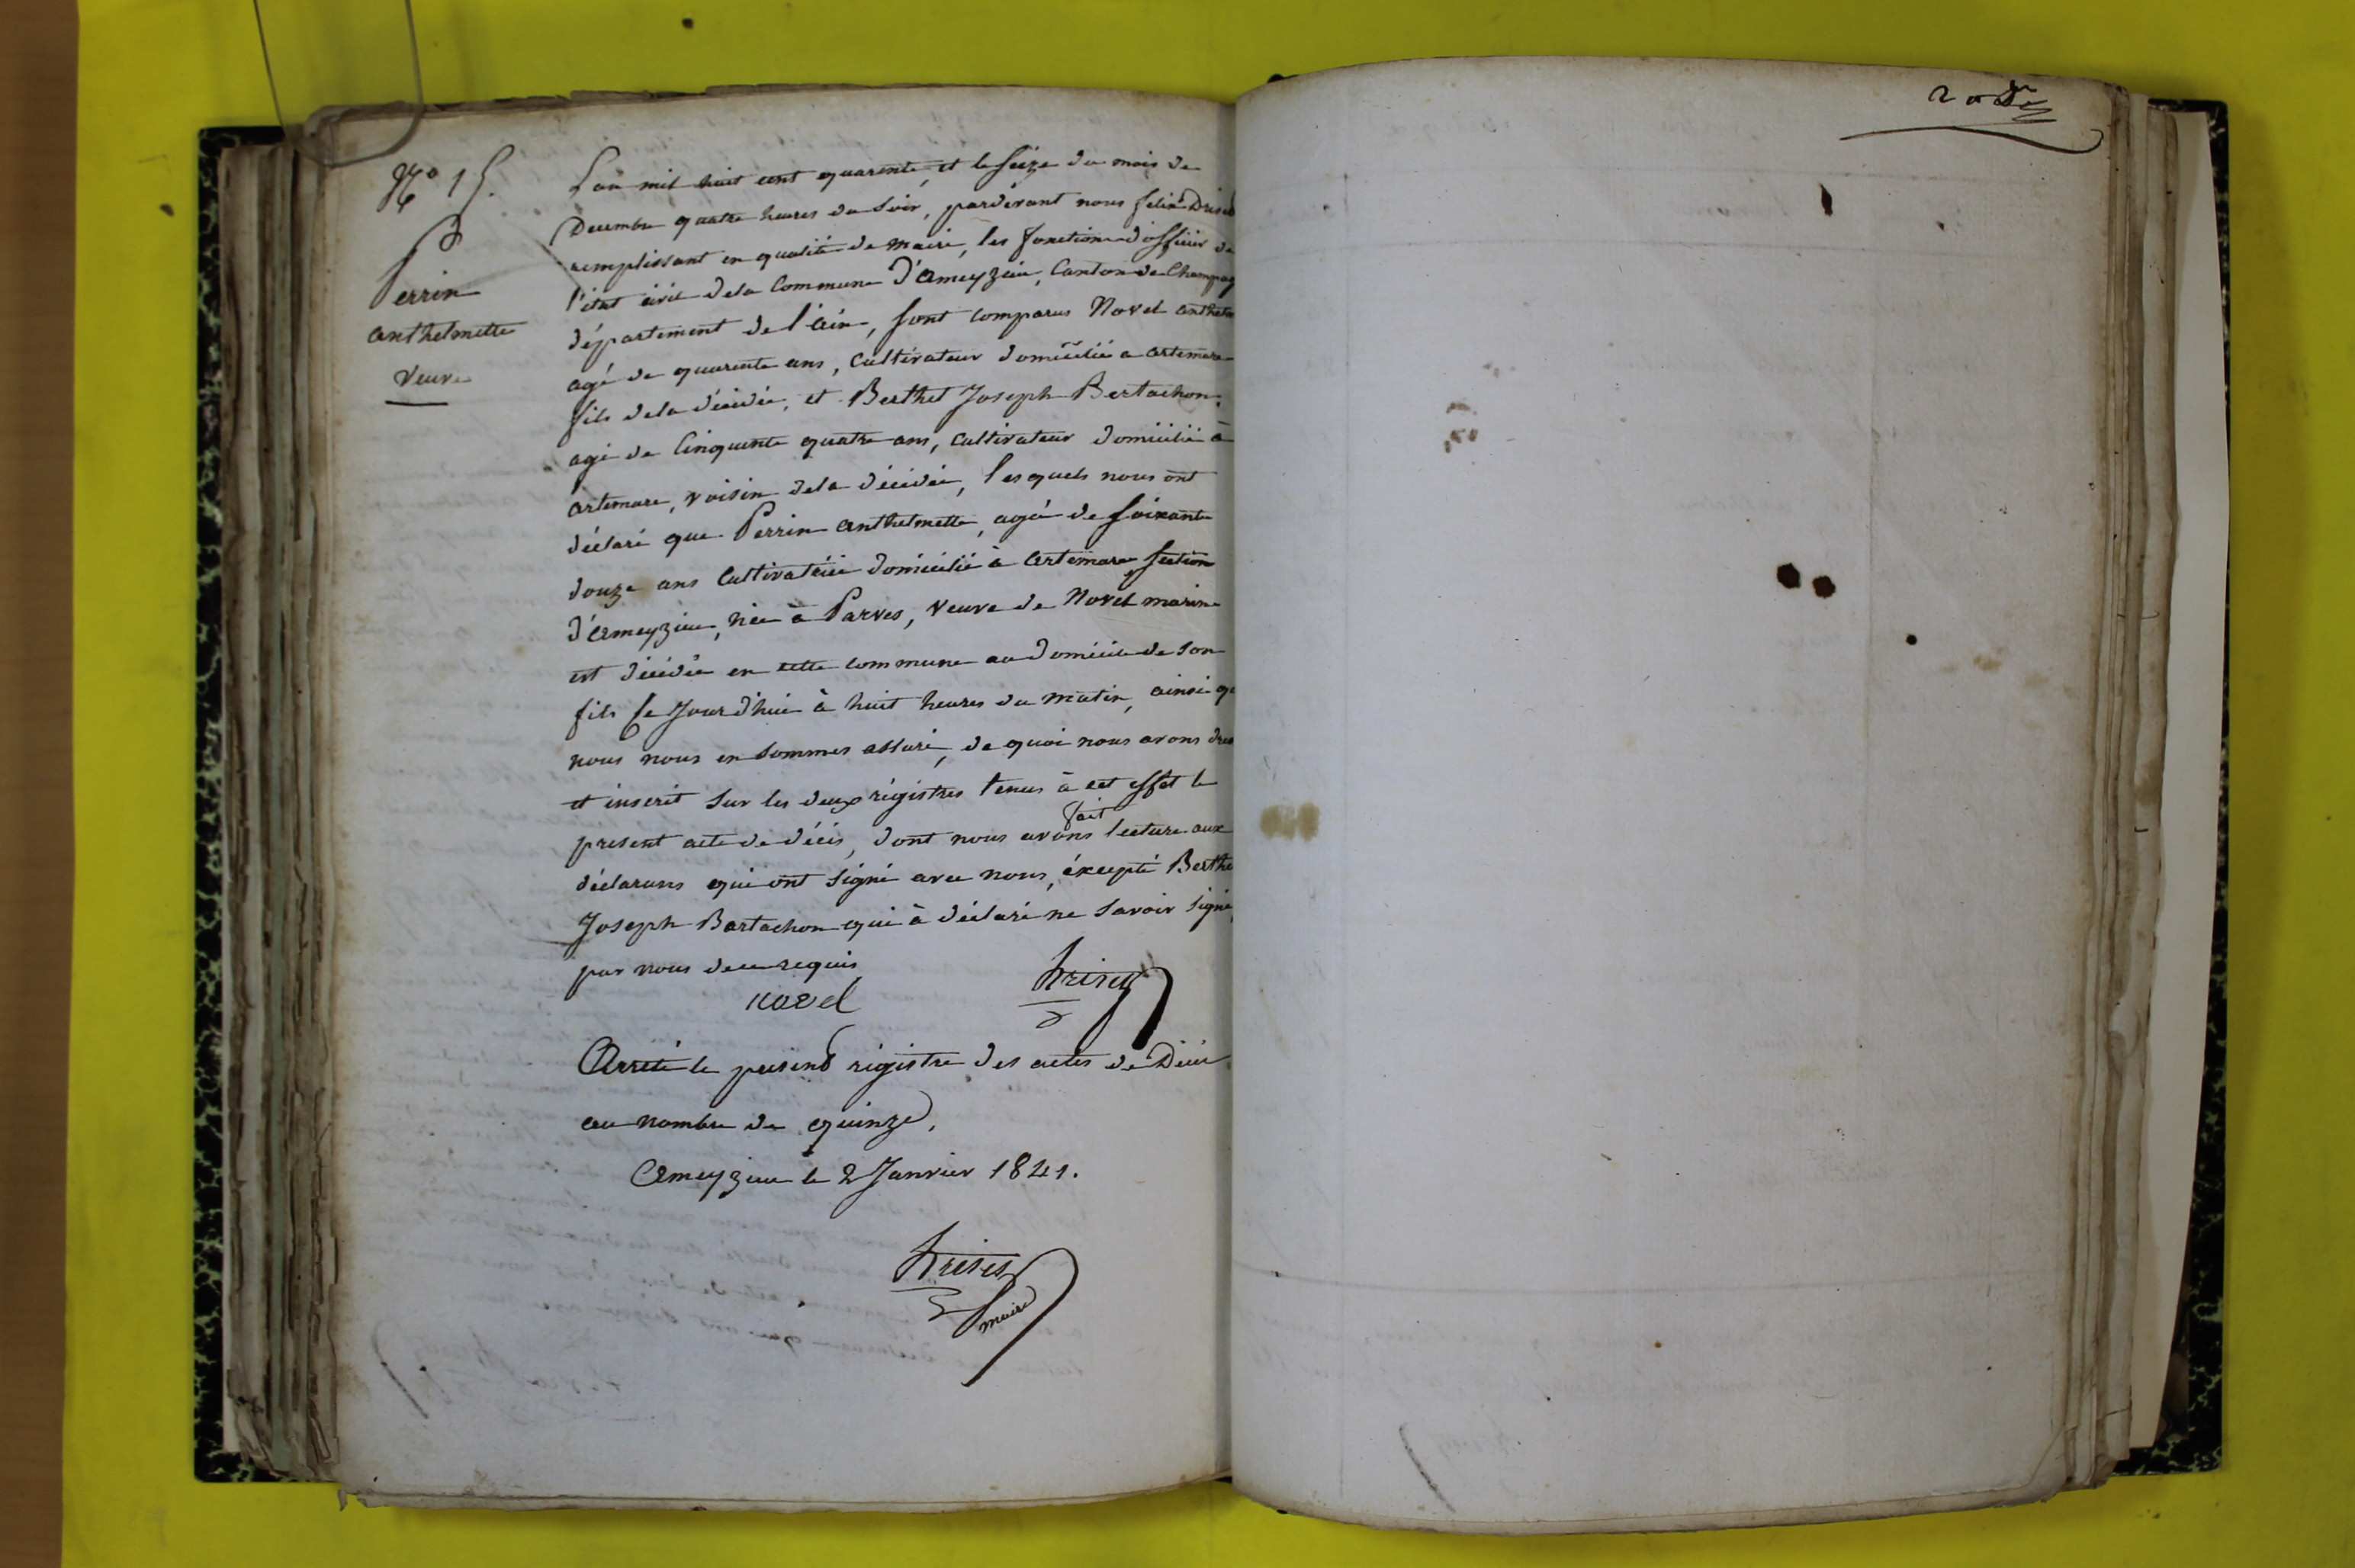 N° 15.
Perrin
anthelmette
Veuve
L'an mil huit cent quarente, et le seize du mois de
Decembre quatre heures du soir, pardevant nous felix
remplissant en qualité de maire, les fonctions d'officier de
l'état civil dela Commune d'Ameyzieu, Canton de Champag
département de l'ain, sont comparus Novel anthelm
agé de quarente ans, Cultivateur domicilié a artemare
fils dela décédée, et Berthet Joseph Bertachon,
agé de Cinquente quatre ans, Cultivateur domicilié à
artemare, voisin dela décédée, lesquels nous ont
déclaré que Perrin anthelmette, agée de soixante
douze ans Cultivatrice domicilié à artemare section
d'Ameyzieu, née à Parves, veuve de Novel marin
est décédée en cette commune au domicile de son
fils ce Jourd'hui à huit heures du matin, ainsi q
nous nous en sommes assuré, de quoi nous avons dres
et inscrit sur les deux régistres tenus à cet effet le
present acte de décès, dont nous avons fait lecture aux
déclarans qui ont signé avec nous, éxcepté Berthe
Joseph Bartachon qui à déclaré ne savoir signé,
par nous de ce requis
novel
Arreté le present régistre des actes de Décès
au nombre de quinze,
Ameyzieu le 2 Janvier 1841.
maire